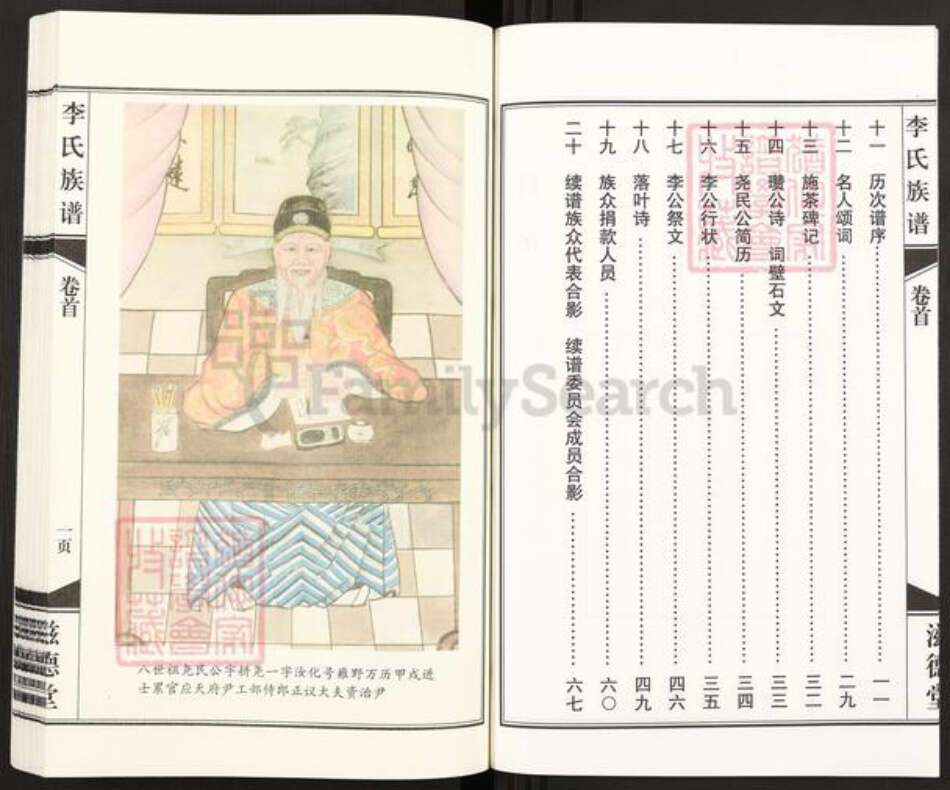 李氏族谱
卷首
滋德堂
十一 历次谱序 一一
十二 名人颂词 二九
十三 施茶碑记 三二
十四 瓒公诗 词壁石文 三三
十五 尧民公简历 三四
十六 李公行状 三五
十七 李公祭文 四六
十八 落叶诗 四九
十九 族众捐款人员 六〇
二十 续谱族众代表合影 续谱委员会成员合影 六七
八世祖尧民公字耕尧一字汝化号雍野万历甲戍进
士累官应天府尹工部侍郎正议大夫资治尹
李氏族谱
卷首
一页
滋德堂
FamilySearch